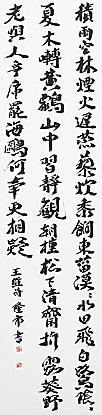 積雨空林煙火遲蒸藜炊黍餉東菑漠〻水田飛白鷺陰〻
夏木囀黃鸝山中習靜觀朝槿松下清齋折露葵野
老與人爭席罷海鷗何事更相疑
王維詩 書